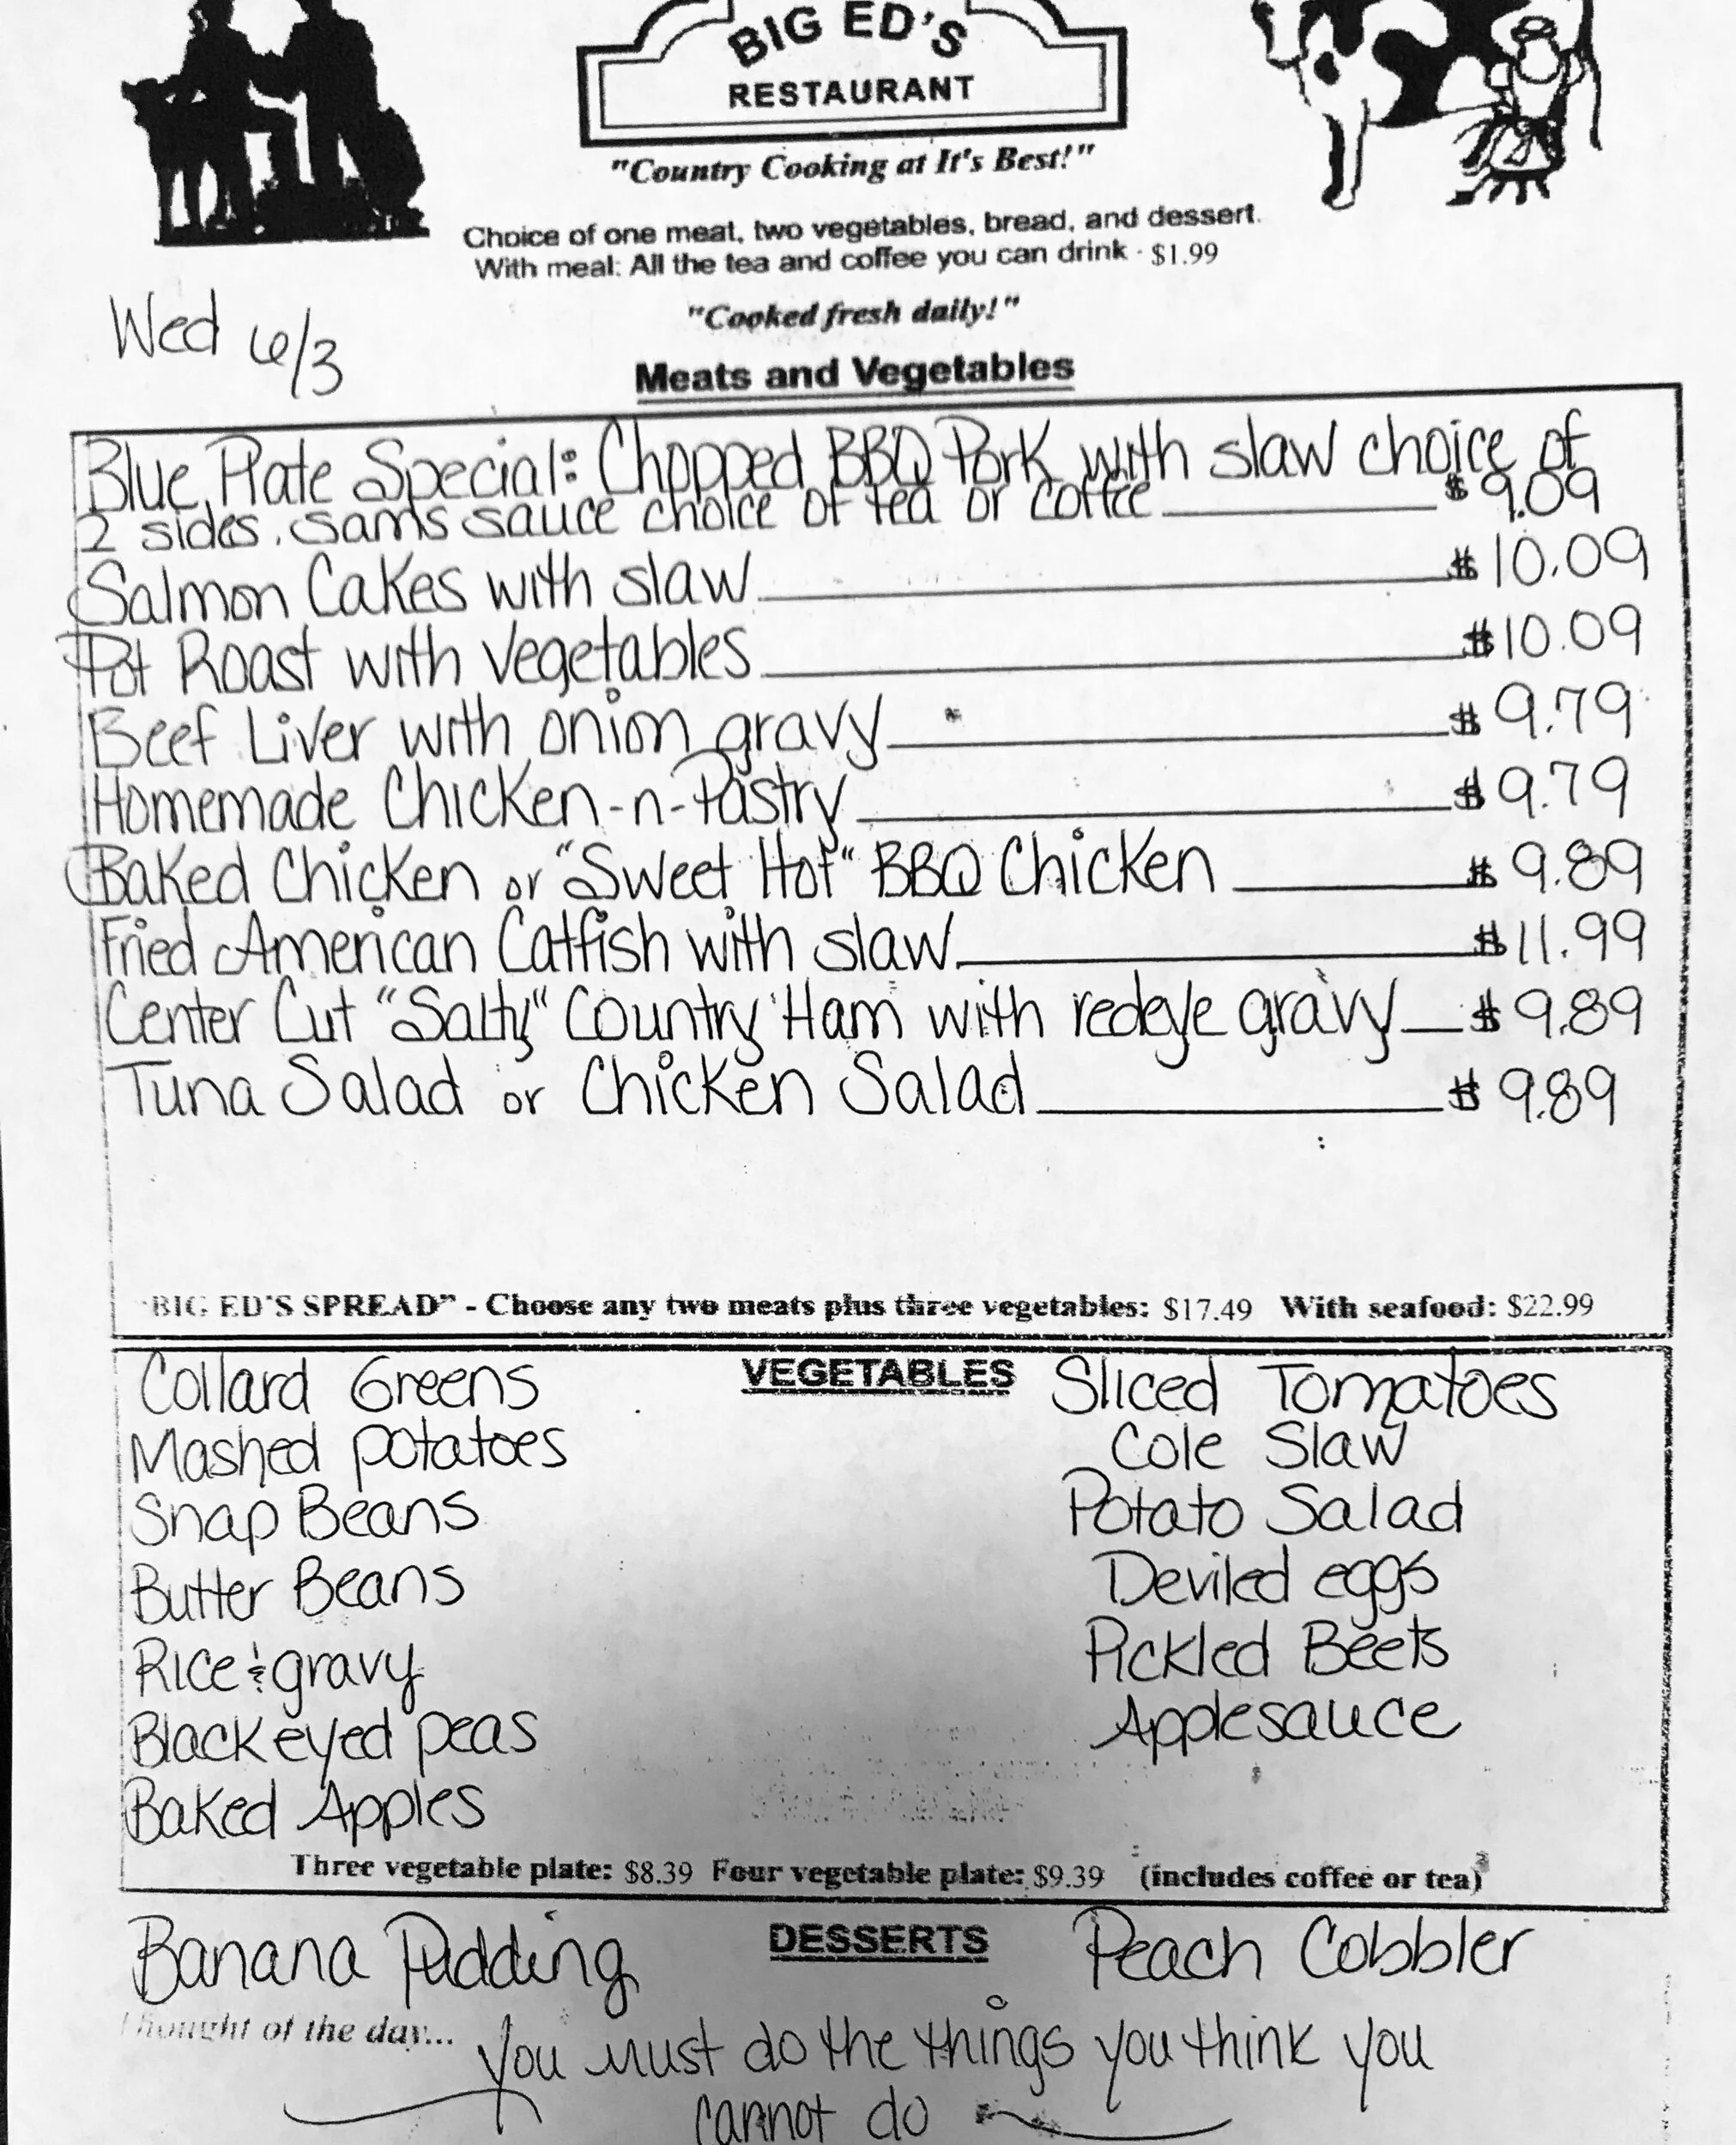 BIG ED'S
RESTAURANT
"Country Cooking at It's Best!"
Choice of one meat, two vegetables, bread, and dessert.
With meal: All the tea and coffee you can drink · $1.99
"Cooked fresh daily!"
Wed 6/3
Meats and Vegetables
Blue Plate Special: Chopped BBQ Pork with slaw choice of
2 sides, sams sauce choice of tea or coffee $9.09
Salmon Cakes with slaw $10.09
Pot Roast with vegetables $10.09
Beef Liver with onion gravy $9.79
Homemade Chicken-n-Pastry $9.79
Baked Chicken or "Sweet Hot" BBQ Chicken $9.89
Fried American Catfish with slaw $11.99
Center Cut "Salty" Country Ham with redeye gravy $9.89
Tuna Salad or Chicken Salad $9.89
"BIG ED'S SPREAD" - Choose any two meats plus three vegetables: $17.49 With seafood: $22.99
VEGETABLES
Collard Greens
Mashed potatoes
Snap Beans
Butter Beans
Rice & gravy
Black eyed peas
Baked Apples
Sliced Tomatoes
Cole Slaw
Potato Salad
Deviled eggs
Pickled Beets
Applesauce
Three vegetable plate: $8.39 Four vegetable plate: $9.39 (includes coffee or tea)
DESSERTS
Banana Pudding
Peach Cobbler
Thought of the day...
You must do the things you think you
cannot do